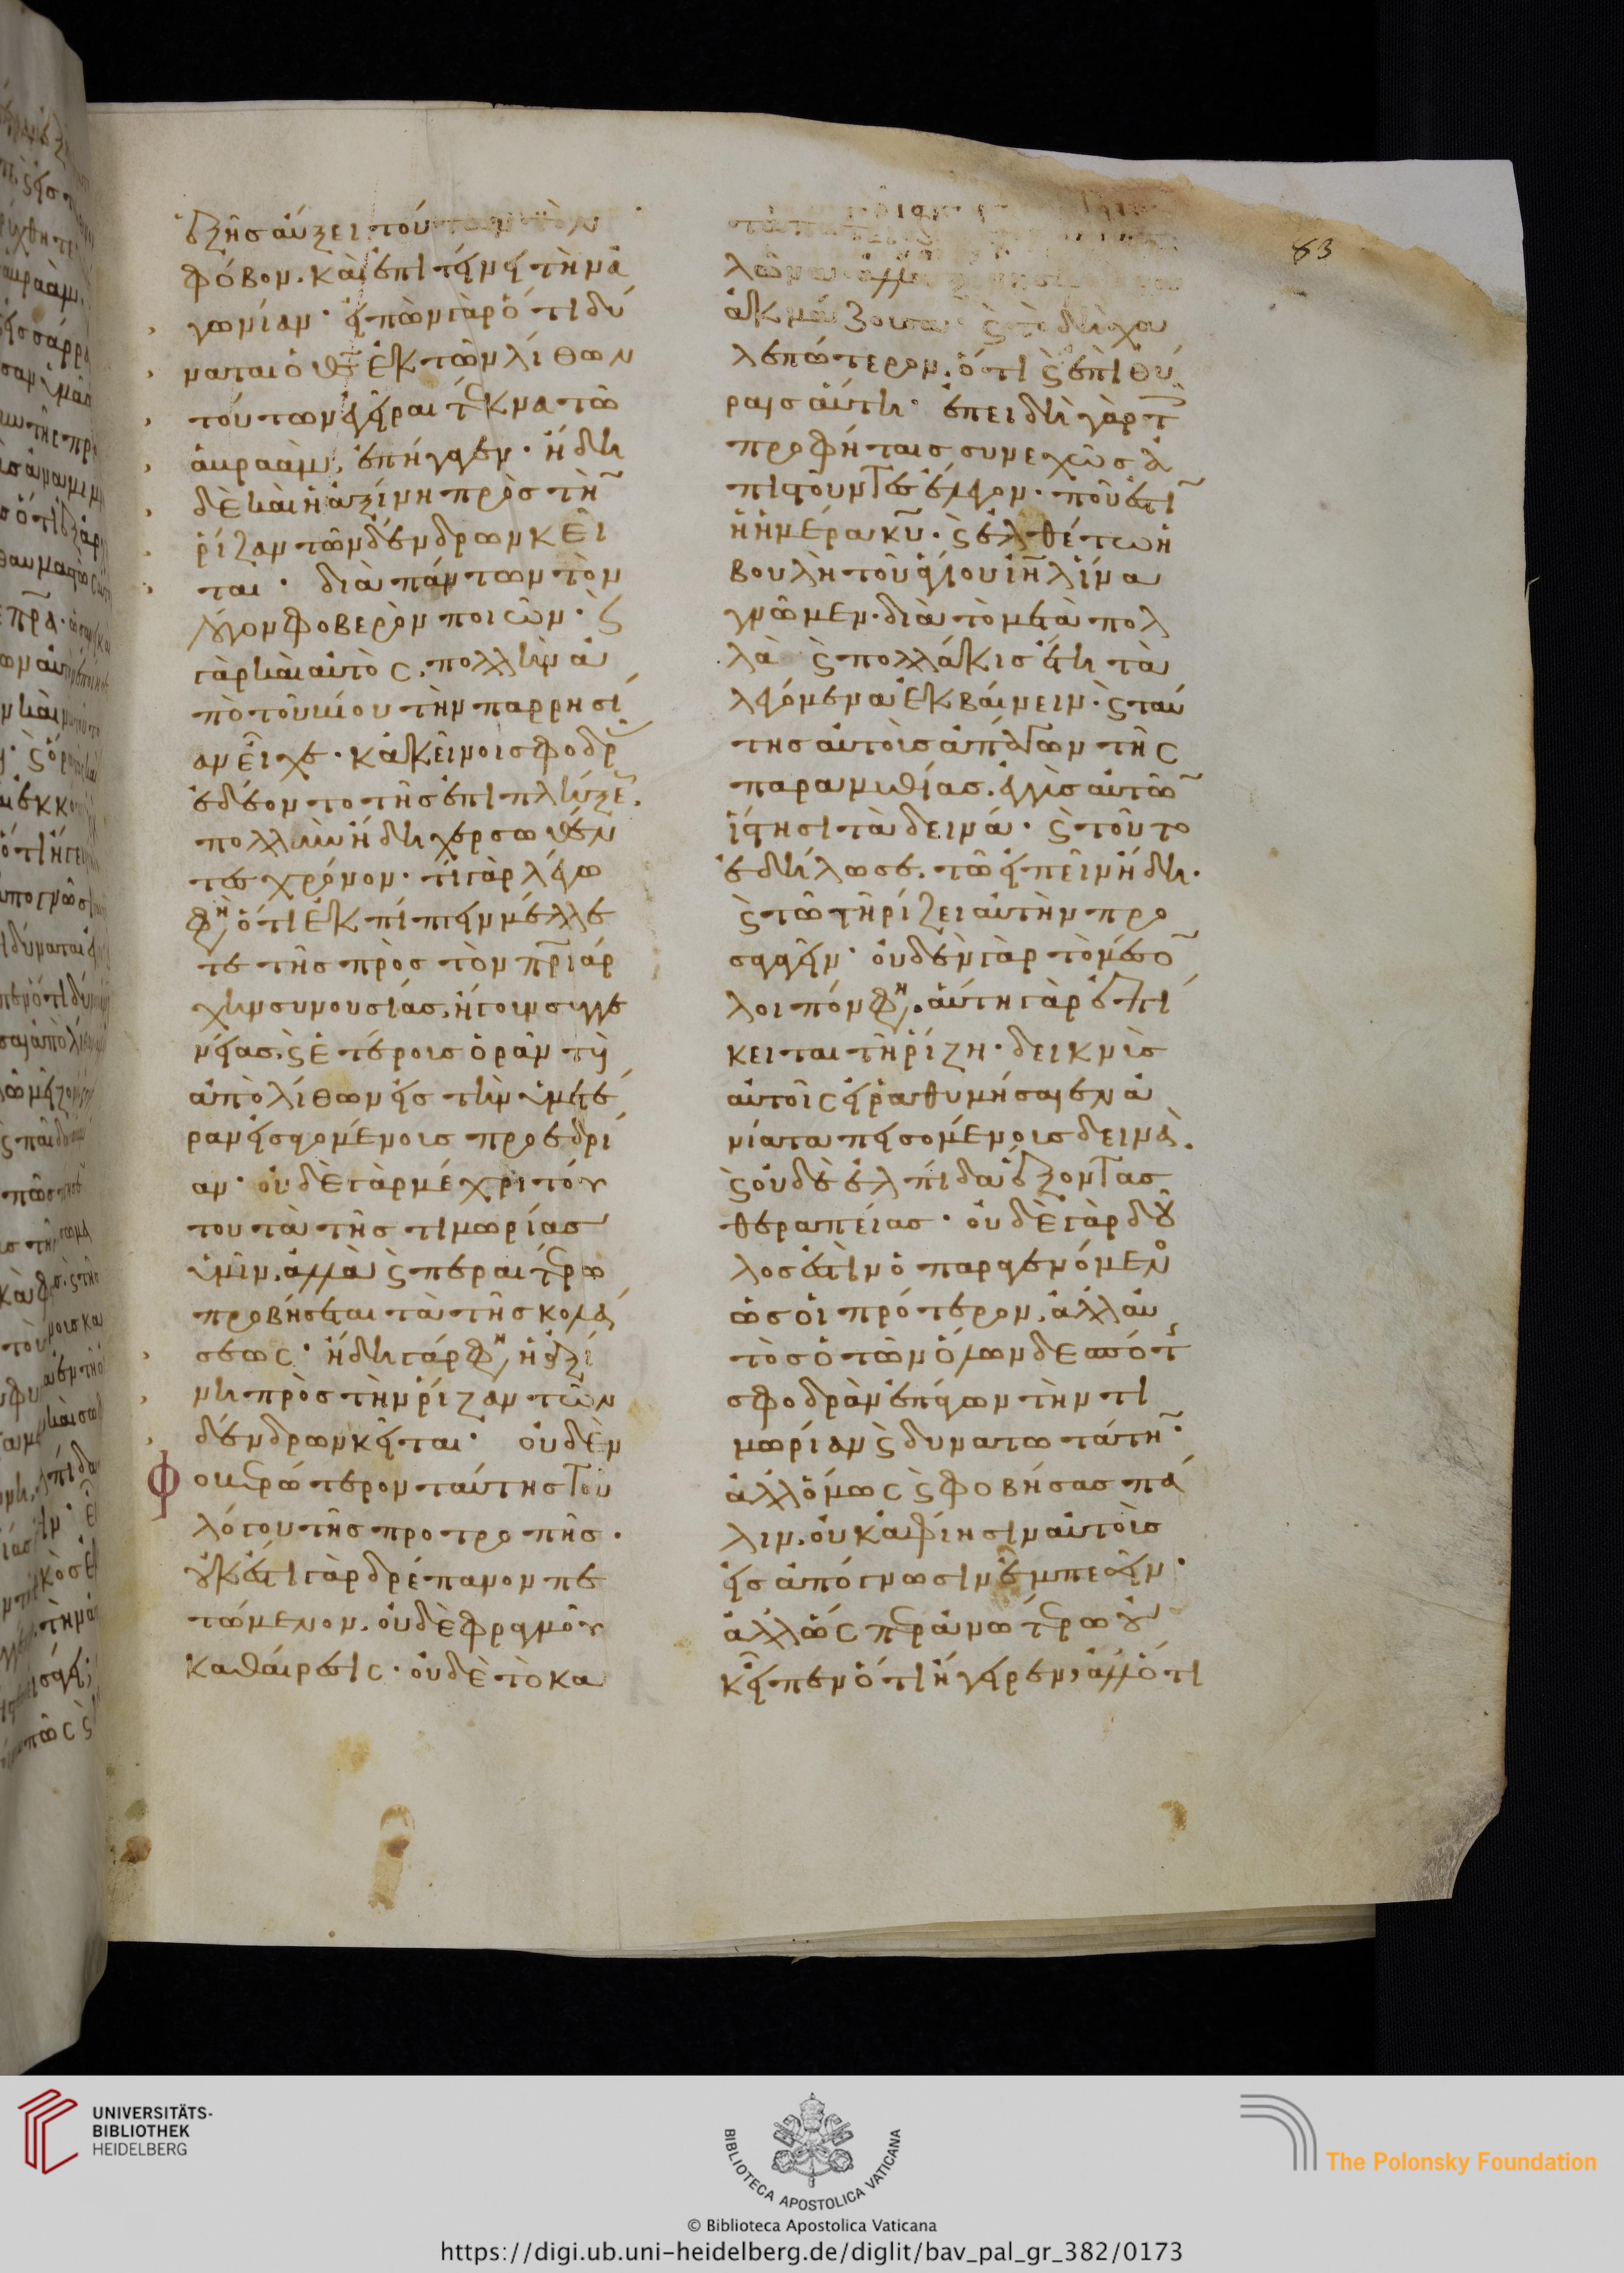 ἑξῆς αὔξει τοῦτον τὸν
φόβον. καὶ ἐπιτείνει τὴν ἀ
γωνίαν· εἰπὼν γὰρ ὅτι δύ
ναται ὁ θς ἐκ τῶν λίθων
τούτων ἐγεῖραι τέκνα τῶ
ἀβραὰμ, ἐπήγαγεν· ἤδη
δὲ καὶ ἡ ἀξίνη πρὸς τὴν
ῥίζαν τῶν δένδρων κεῖ
ται· διὰ πάντων τὸν
λόγον φοβερὸν ποιῶν· καὶ
γὰρ καὶ αὐτὸς, πολλὴν ἀ
πὸ τοῦ βίου τὴν παρρησί
αν εἶχε. κἀκεῖνοι σφοδρ
ἐδέοντο τῆς ἐπιπλήξε.
πολλὺν ἤδη χερσωθέν
τες χρόνον· τί γὰρ λέγω
φη, ὅτι ἐκπίπτειν μέλλε
τε τῆς πρὸς τὸν πριάρ
χην συνουσίας, ἤτοιν συγγε
νείας, καὶ ἑτέροις ὁρᾶν τοὺς
ἀπὸ λίθων εἰς τὴν ὑμετέ
ραν εἰσαγομένοις προεδρί
αν· οὐδὲ γὰρ μέχρι τού
του τὰ τῆς τιμωρίας
ὑμῖν, ἀλλὰ καὶ περαιτέρω
προβήσεται τὰ τῆς κολά
σεως· ἤδη γάρ φη, ἡ ἀξί
νη πρὸς τὴν ῥίζαν τῶν
δένδρων κεῖται· οὐδὲν
φοβερώτερον ταύτης τοῦ
λόγου τῆς προτροπῆς·
οὐκέτι γὰρ δρέπανον πε
τώμενον, οὐδὲ φραγμοῦ
καθαίρεσις· οὐδὲ τὸ κα
ἀκμάζουσαν· καὶ τὸ δὴ χα
λεπώτερον, ὅτι καὶ ἐπὶ θύ
ραις αὐτή· ἐπειδὴ γὰρ τ
προφήταις συνεχῶς ἀ
πιστοῦντες ἔλεγον· ποῦ ἐστὶν
ἡ ἡμέρα κυ· καὶ ἐλθέτω ἡ
βουλὴ τοῦ ἁγίου ιηλ ἵνα
γνῶμεν· διὰ τὸ μετὰ πολ
λὰ καὶ πολλάκις ἔτη τὰ
λεγόμενα ἐκβαίνειν· καὶ ταύ
της αὐτοὺς ἀπάγων τῆς
παραμυθίας, ἐγγὺς αὐτῶν
ἵστησι τὰ δεινά· καὶ τοῦτο
ἐδήλωσε, τῶ εἰπεῖν ἤδη·
καὶ τῶ τῆ ῥίζει αὐτὴν προ
σαγαγεῖν· οὐδὲν γὰρ τὸ μέσον
λοιπόν φη, αὕτη γὰρ ἐπί
κειται τῆ ῥίζη· δεικνὺς
αὐτοῖς εἰ ῥαθυμήσαιεν ἀ
νίατα πεισομένοις δεινὰ,
καὶ οὐδὲ ἐλπίδα ἕξοντας
θεραπείας· οὐδὲ γὰρ δοῦ
λος ἐστὶν ὁ παραγενόμενο
ὡς οἱ πρότερον, ἀλλ' αὐ
τὸς ὁ τῶν ὅλων δεσπότ
σφοδρὰν ἐπάγων τὴν τι
μωρίαν καὶ δυνατωτάτην·
ἀλλ' ὅμως καὶ φοβήσας πά
λιν, οὐκ ἀφίησιν αὐτοὺς
εἰς ἀπόγνωσιν ἐμπεσεῖν·
κεῖπεν ὅτι ἤγειρεν, ἀλλ' ὅτι
63
UNIVERSITÄTS-
BIBLIOTHEK
HEIDELBERG
BIBLIOTECA APOSTOLICA VATICANA
The Polonsky Foundation
© Biblioteca Apostolica Vaticana
https://digi.ub.uni-heidelberg.de/diglit/bav_pal_gr_382/0173